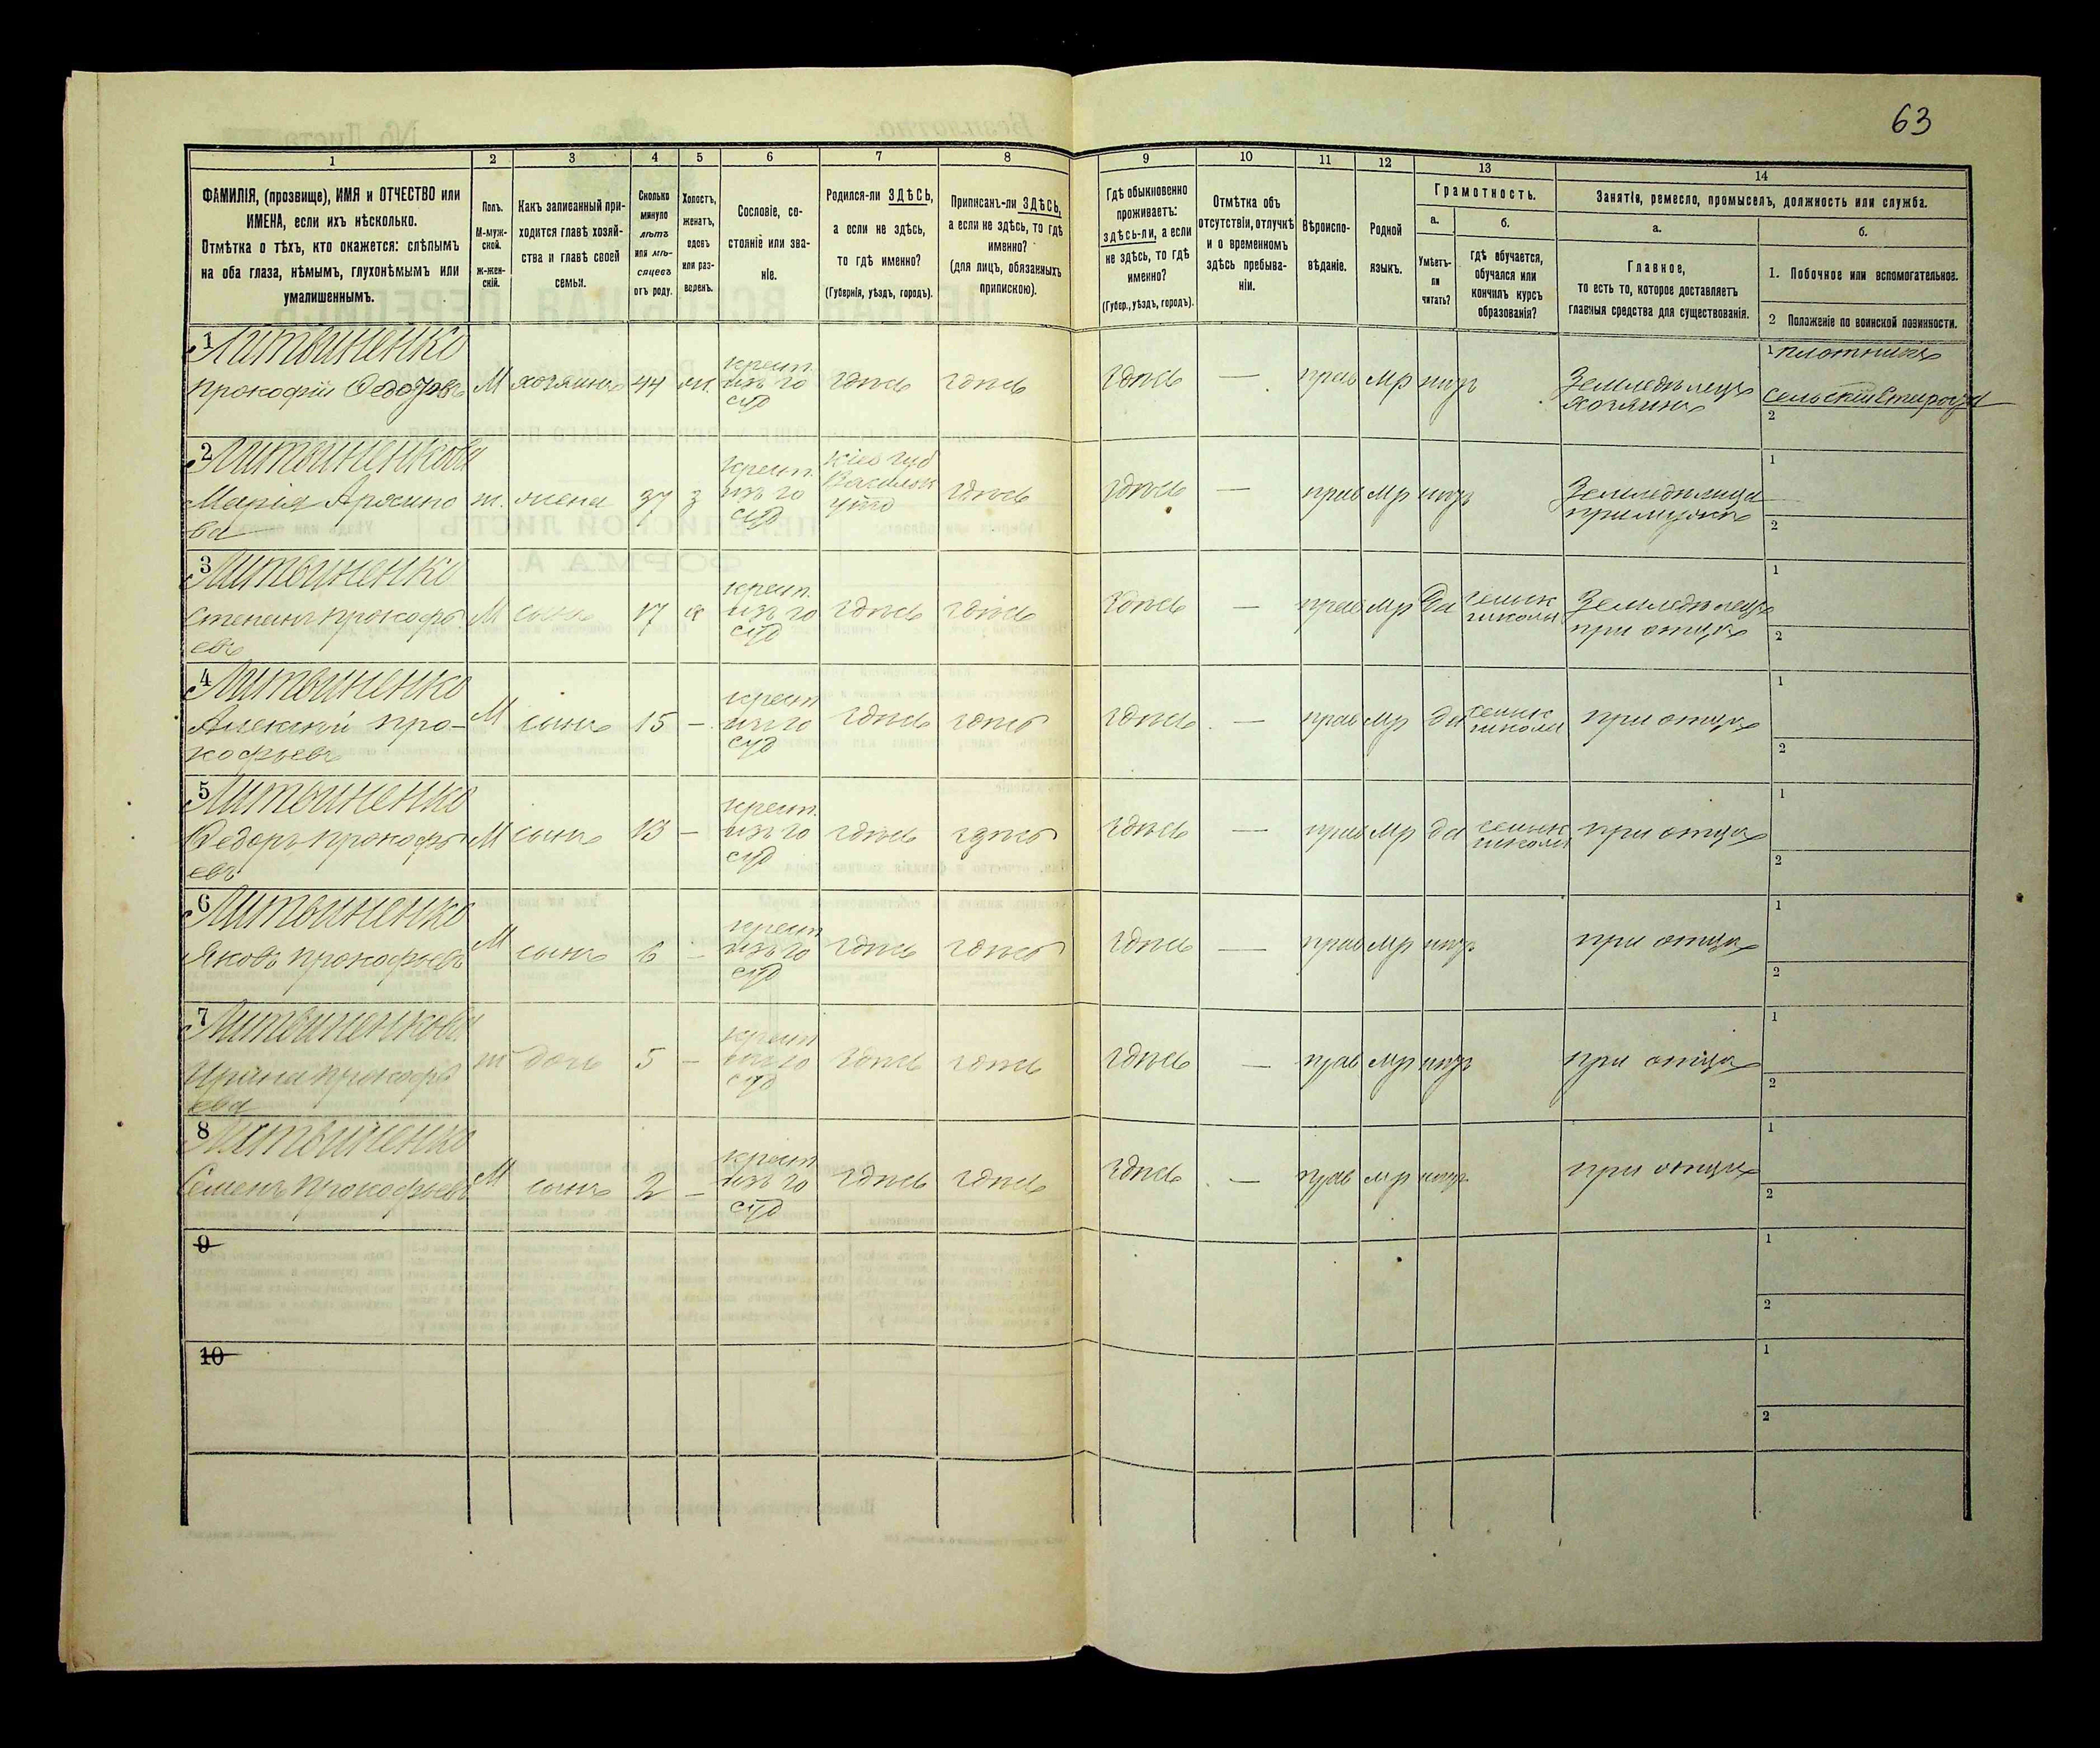 63
1 2 3 4 5 6 7 8 9 10 11 12 13 14
ФАМИЛІЯ, (прозвище), ИМЯ и ОТЧЕСТВО или
ИМЕНА, если ихъ нѣсколько.
Отмѣтка о тѣхъ, кто окажется: слѣпымъ
на оба глаза, нѣмымъ, глухонѣмымъ или
умалишеннымъ.
Полъ.
М-муж-
ской.
ж-жен-
скій.
Какъ записанный при-
ходится главѣ хозяй-
ства и главѣ своей
семьи.
Сколько
минуло
лѣтъ
или мѣ-
сяцевъ
отъ роду.
Холостъ,
женатъ,
вдовъ
или раз-
веденъ.
Сословіе, со-
стояніе или зва-
ніе.
Родился-ли ЗДѢСЬ,
а если не здѣсь,
то гдѣ именно?
(Губернія, уѣздъ, городъ).
Приписанъ-ли ЗДѢСЬ,
а если не здѣсь, то гдѣ
именно?
(для лицъ, обязанныхъ
припискою).
Гдѣ обыкновенно
проживаетъ:
здѣсь-ли, а если
не здѣсь, то гдѣ
именно?
(Губер., уѣздъ, городъ).
Отмѣтка объ
отсутствіи, отлучкѣ
и о временномъ
здѣсь пребыва-
ніи.
Вѣроиспо-
вѣданіе.
Родной
языкъ.
Грамотность.
а.
Умѣетъ-
ли
читать?
б.
гдѣ обучается,
обучался или
кончилъ курсъ
образованія?
Занятіе, ремесло, промыселъ, должность или служба.
а.
Главное,
то есть то, которое доставляетъ
главныя средства для существованія.
б.
1. Побочное или вспомогательное.
2 Положеніе по воинской повинности.
1 Литвиненко
Прокофій Федоровъ М хозяинъ 44 крест. здѣсь здѣсь здѣсь — прав мр нѣтъ Земледѣлецъ 1 плотникъ
изъ го хозяинъ сельскій Староста
суд 2
2 Литвиненкова крест. Кіев губ 1
Марія ж. жена 37 з изъ го Васильк здѣсь здѣсь — прав мр нѣтъ Земледѣлица
ва суд при мужѣ 2
3 Литвиненко крест. 1
Степанъ Прокофь М сынъ 17 х изъ го здѣсь здѣсь здѣсь — прав мр да сельск Земледѣлецъ
евъ суд школы при отцѣ 2
4 Литвиненко крест 1
Алексѣй Про- М сынъ 15 — изъ го здѣсь здѣсь здѣсь — прав мр да сельск при отцѣ
кофьевъ суд школы 2
5 Литвиненко крест. 1
Федоръ Прокофь М сынъ 13 — изъ го здѣсь здѣсь здѣсь — прав мр да сельск при отцѣ
евъ суд школы 2
6 Литвиненко крест 1
Яковъ Прокофьевъ М сынъ 6 — изъ го здѣсь здѣсь здѣсь — прав мр нѣтъ при отцѣ
суд 2
7 Литвиненкова крест 1
Ирина Прокофь ж дочь 5 — изъ го здѣсь здѣсь здѣсь — прав мр нѣтъ при отцѣ
ева суд 2
8 Литвиненко крест 1
Семенъ Прокофьевъ М сынъ 2 — изъ го здѣсь здѣсь здѣсь — прав мр нѣтъ при отцѣ
суд 2
9 1
2
10 1
2